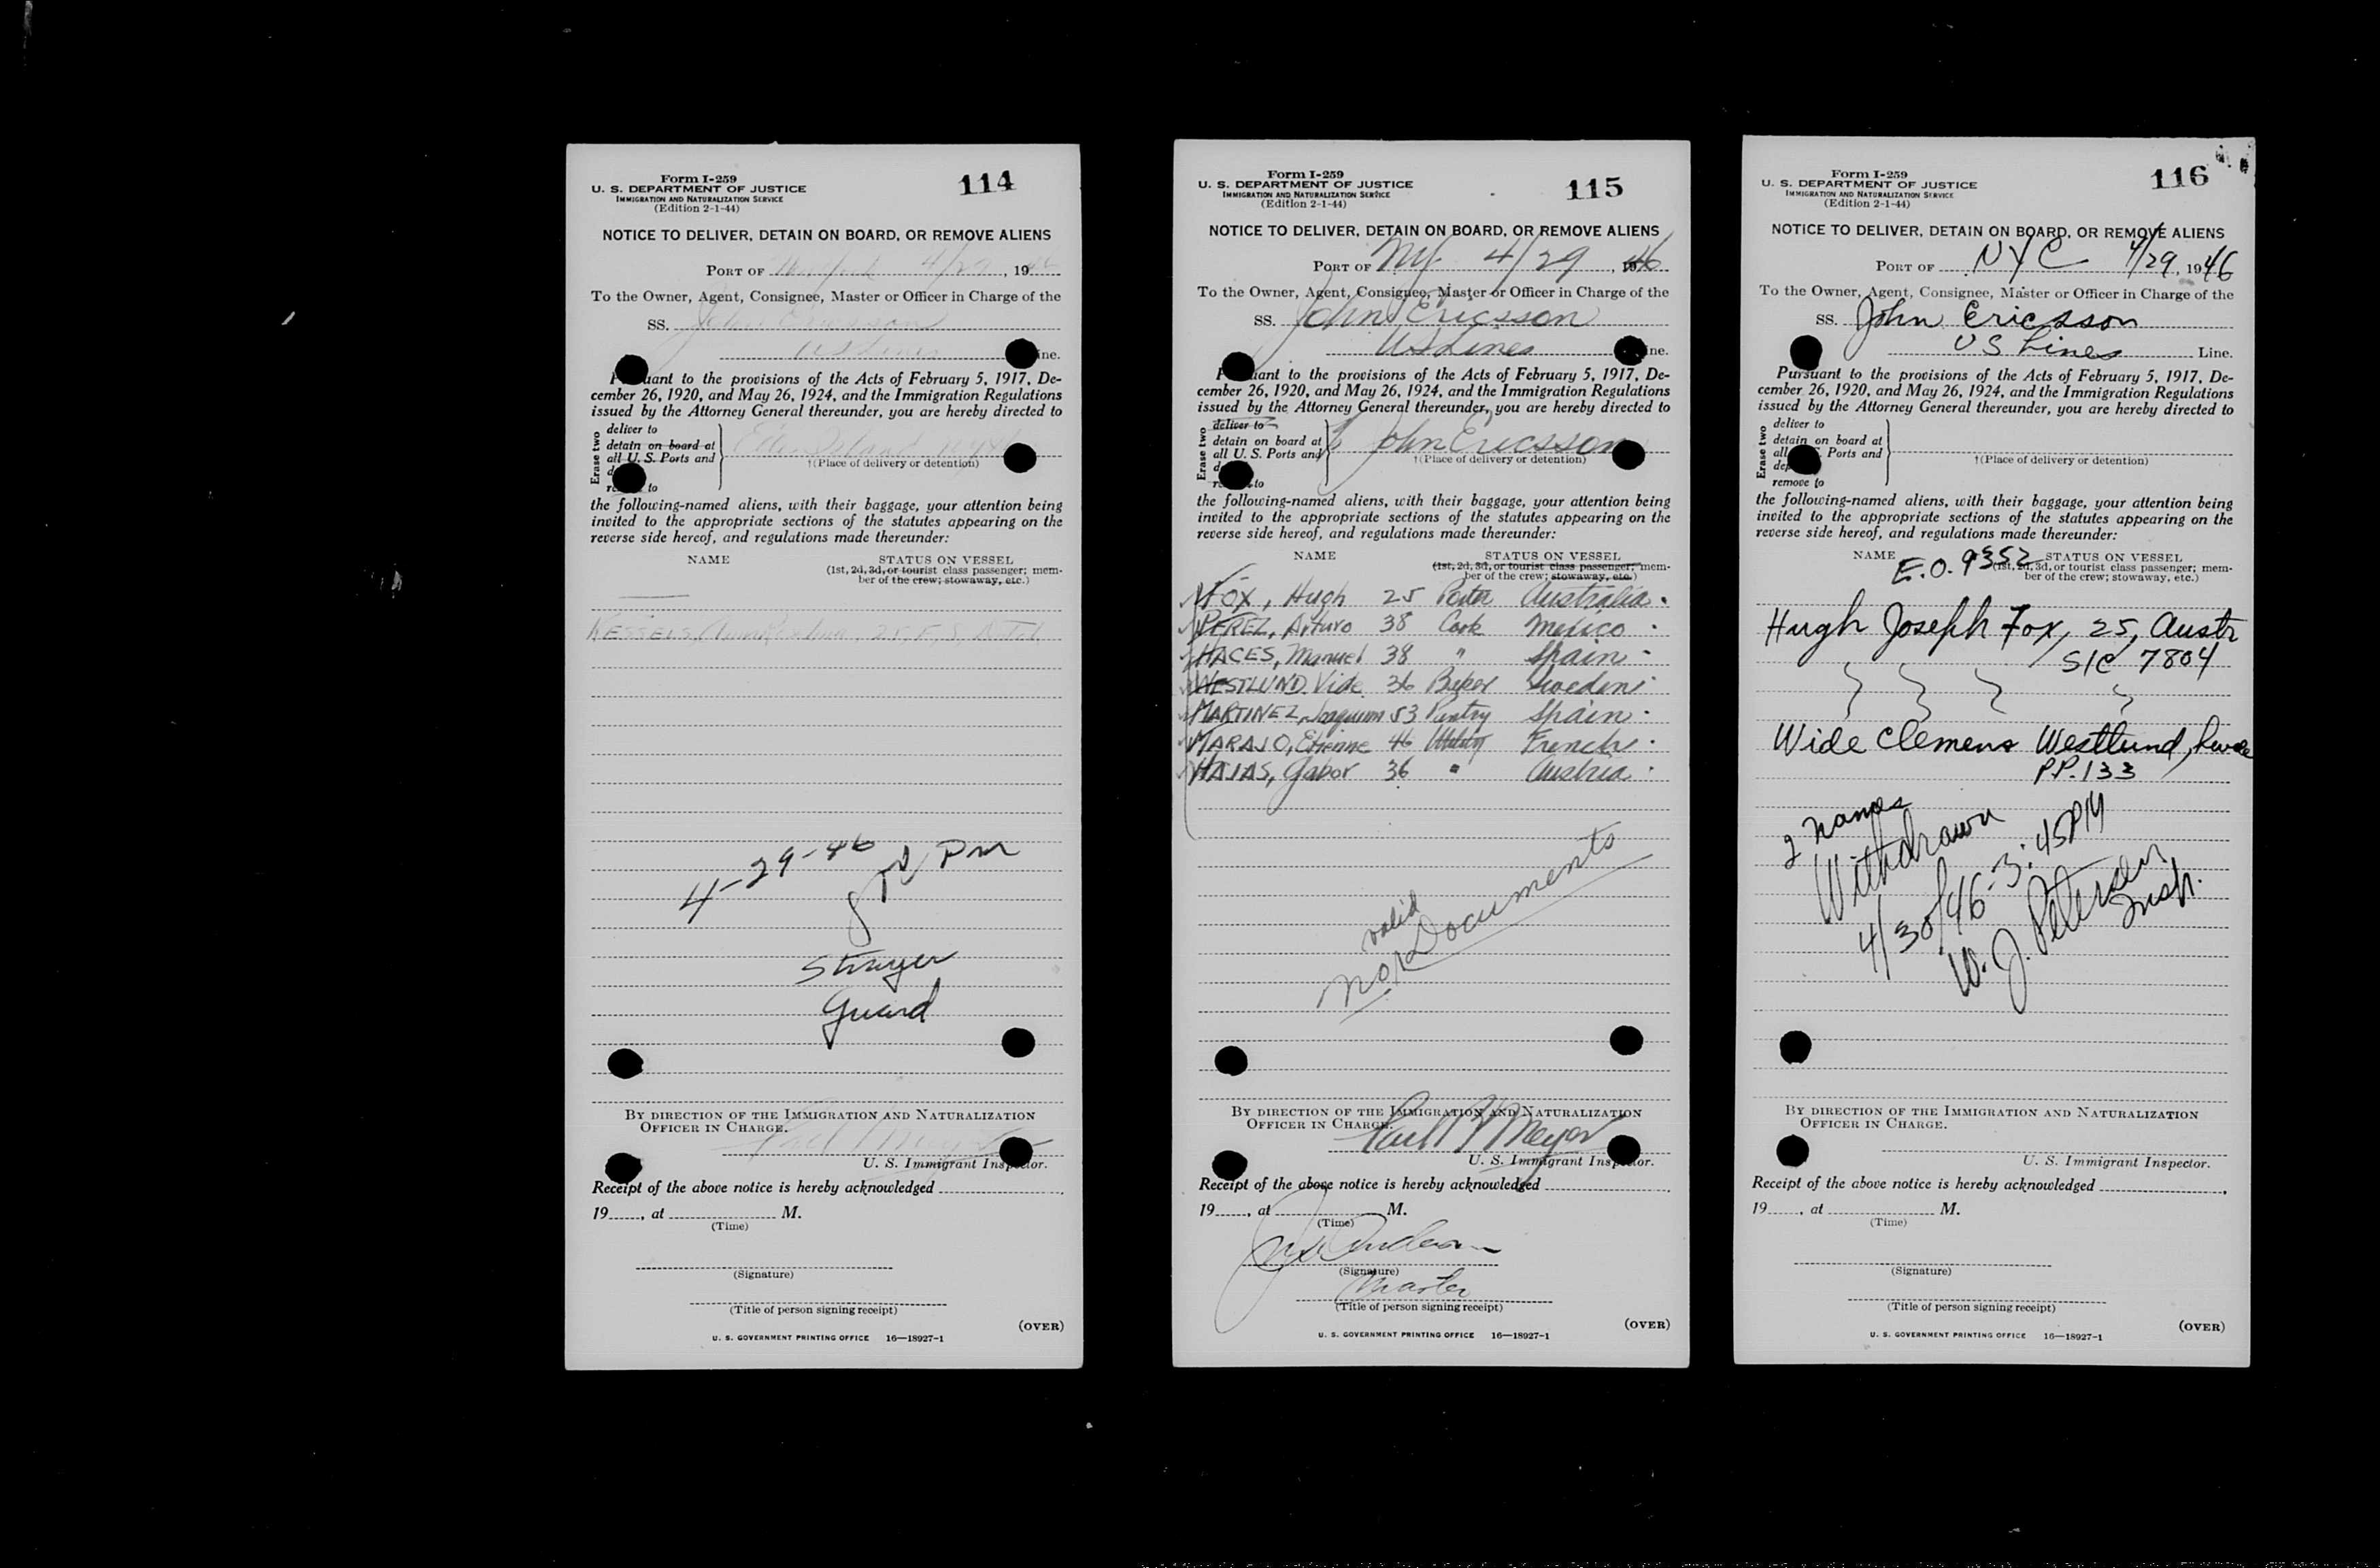 Form I-259
U. S. DEPARTMENT OF JUSTICE
IMMIGRATION AND NATURALIZATION SERVICE
(Edition 2-1-44)
114
NOTICE TO DELIVER, DETAIN ON BOARD, OR REMOVE ALIENS
PORT OF New York 4/29, 1946
To the Owner, Agent, Consignee, Master or Officer in Charge of the
SS. John Ericsson
US Lines Line.
Pursuant to the provisions of the Acts of February 5, 1917, De-
cember 26, 1920, and May 26, 1924, and the Immigration Regulations
issued by the Attorney General thereunder, you are hereby directed to
Erase two
deliver to
detain on board at
all U. S. Ports and
remove to
Ellis Island
†(Place of delivery or detention)
the following-named aliens, with their baggage, your attention being
invited to the appropriate sections of the statutes appearing on the
reverse side hereof, and regulations made thereunder:
NAME STATUS ON VESSEL
(1st, 2d, 3d, or tourist class passenger; mem-
ber of the crew; stowaway, etc.)
KESSELS,
4-29-46 Pm
Guard
BY DIRECTION OF THE IMMIGRATION AND NATURALIZATION
OFFICER IN CHARGE.
Paul Meyer
U. S. Immigrant Inspector.
Receipt of the above notice is hereby acknowledged
19, at M.
(Time)
(Signature)
(Title of person signing receipt)
(OVER)
U. S. GOVERNMENT PRINTING OFFICE 16—18927-1
Form I-259
U. S. DEPARTMENT OF JUSTICE
IMMIGRATION AND NATURALIZATION SERVICE
(Edition 2-1-44)
115
NOTICE TO DELIVER, DETAIN ON BOARD, OR REMOVE ALIENS
PORT OF NY 4/29, 1946
To the Owner, Agent, Consignee, Master or Officer in Charge of the
SS. John Ericsson
US Lines Line.
Pursuant to the provisions of the Acts of February 5, 1917, De-
cember 26, 1920, and May 26, 1924, and the Immigration Regulations
issued by the Attorney General thereunder, you are hereby directed to
Erase two
deliver to
detain on board at
all U. S. Ports and
remove to
John Ericsson
†(Place of delivery or detention)
the following-named aliens, with their baggage, your attention being
invited to the appropriate sections of the statutes appearing on the
reverse side hereof, and regulations made thereunder:
NAME STATUS ON VESSEL
(1st, 2d, 3d, or tourist class passenger; mem-
ber of the crew; stowaway, etc.)
FOX, Hugh 25 Porter Australia
PEREZ, Arturo 38 Cook Mexico
HACES, Manuel 38 " Spain
WESTLUND, Vide 36 Baker Sweden
MARTINEZ, Joaquim 53 Pantry Spain
MARAJO, Etienne 46 Utility French
HAJAS, Gabor 36 " Austria
No valid Documents
BY DIRECTION OF THE IMMIGRATION AND NATURALIZATION
OFFICER IN CHARGE.
Paul Meyer
U. S. Immigrant Inspector.
Receipt of the above notice is hereby acknowledged
19, at M.
(Time)
Anderson
(Signature)
Master
(Title of person signing receipt)
(OVER)
U. S. GOVERNMENT PRINTING OFFICE 16—18927-1
Form I-259
U. S. DEPARTMENT OF JUSTICE
IMMIGRATION AND NATURALIZATION SERVICE
(Edition 2-1-44)
116
NOTICE TO DELIVER, DETAIN ON BOARD, OR REMOVE ALIENS
PORT OF NYC 4/29, 1946
To the Owner, Agent, Consignee, Master or Officer in Charge of the
SS. John Ericsson
US Lines Line.
Pursuant to the provisions of the Acts of February 5, 1917, De-
cember 26, 1920, and May 26, 1924, and the Immigration Regulations
issued by the Attorney General thereunder, you are hereby directed to
Erase two
deliver to
detain on board at
all Ports and
remove to
†(Place of delivery or detention)
the following-named aliens, with their baggage, your attention being
invited to the appropriate sections of the statutes appearing on the
reverse side hereof, and regulations made thereunder:
NAME STATUS ON VESSEL
E.O. 9352
(1st, 2d, 3d, or tourist class passenger; mem-
ber of the crew; stowaway, etc.)
Hugh Joseph Fox, 25, Austr
SIC 7804
Wide Clemens Westlund, Swede
P.P. 133
2 names
Withdrawn
4/30/46 - 3:45PM
W. J. Petersen
Insp.
BY DIRECTION OF THE IMMIGRATION AND NATURALIZATION
OFFICER IN CHARGE.
U. S. Immigrant Inspector.
Receipt of the above notice is hereby acknowledged
19, at M.
(Time)
(Signature)
(Title of person signing receipt)
(OVER)
U. S. GOVERNMENT PRINTING OFFICE 16—18927-1